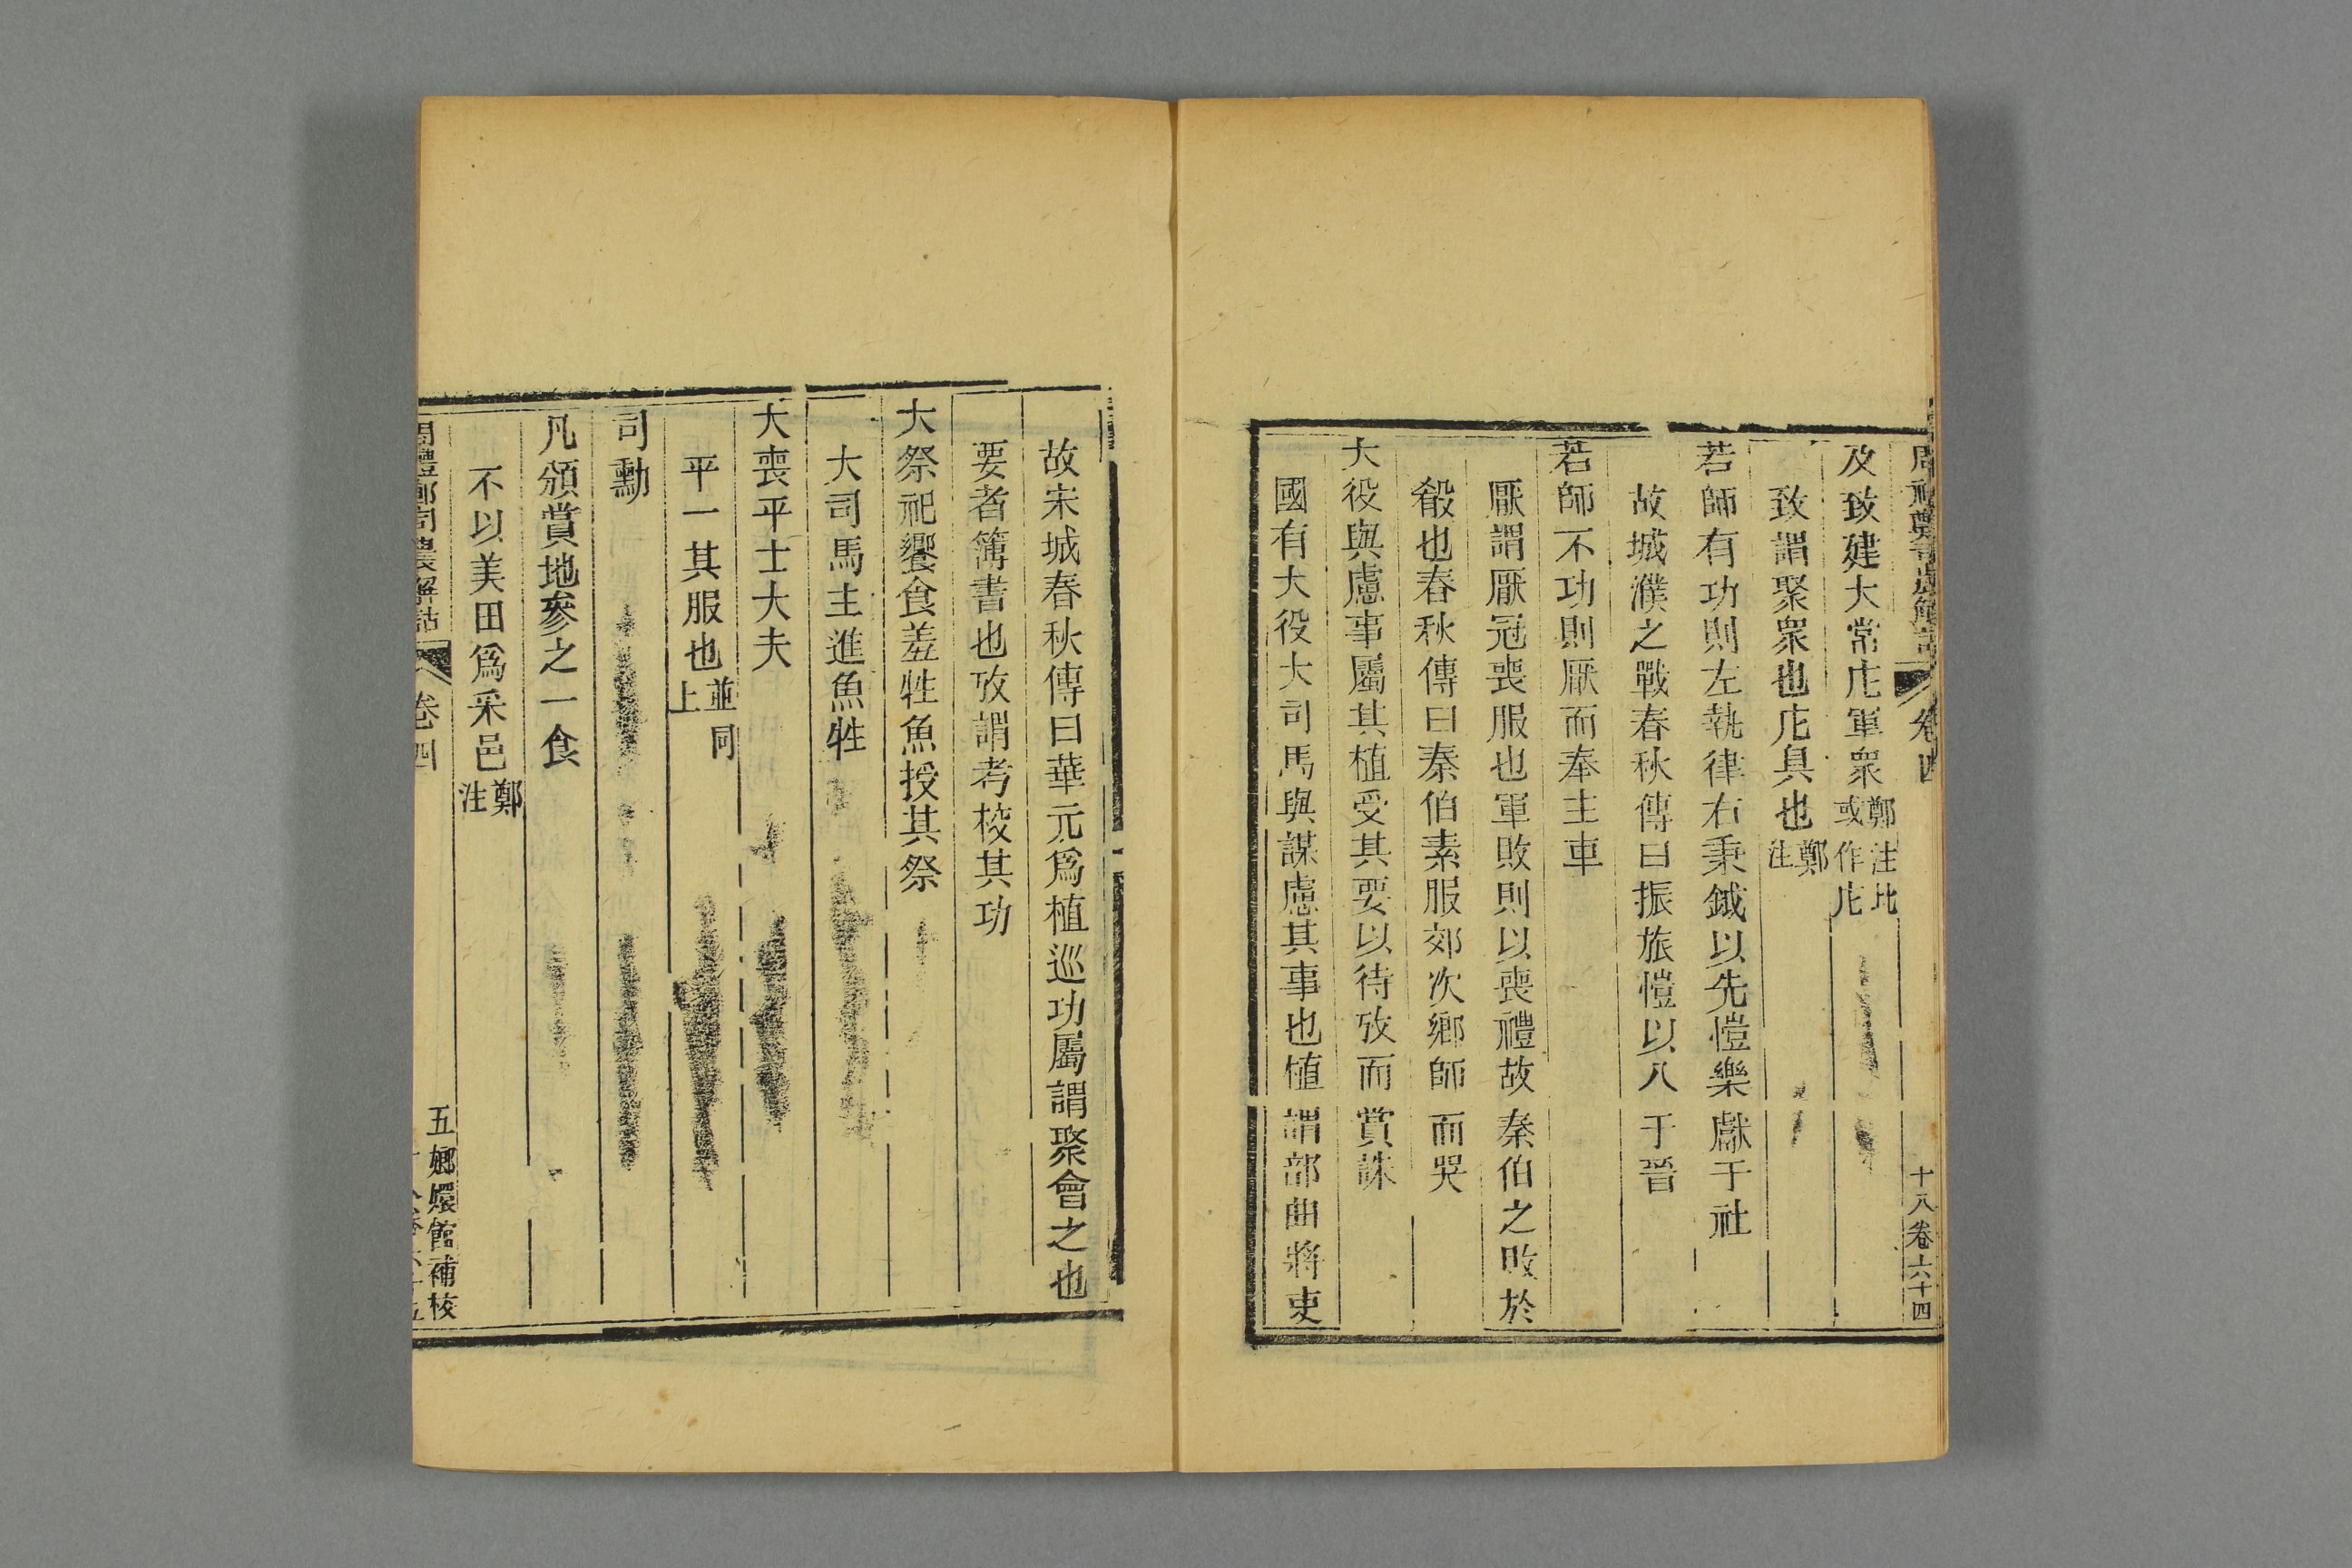 及致建大常庀軍衆鄭注比或作庀
致謂聚衆也庀具也鄭注
若師有功則左執律右秉鉞以先愷樂獻于社
故城濮之戰春秋傳曰振旅愷以入于晉
若師不功則厭而奉主車
厭謂厭冠喪服也軍敗則以喪禮故秦伯之敗於
殽也春秋傳曰秦伯素服郊次鄉師而哭
大役與慮事屬其植受其要以待攷而賞誅
國有大役大司馬與謀慮其事也植謂部曲將吏
十八卷六十四
故宋城春秋傳曰華元爲植巡功屬謂聚會之也
要者簿書也攷謂考校其功
大祭祀饗食羞牲魚授其祭
大司馬主進魚牲
大喪平士大夫
平一其服也並同上
司勳
凡頒賞地參之一食
不以美田爲采邑鄭注
周禮鄭司農解詁
卷四
五嫏嬛館補校